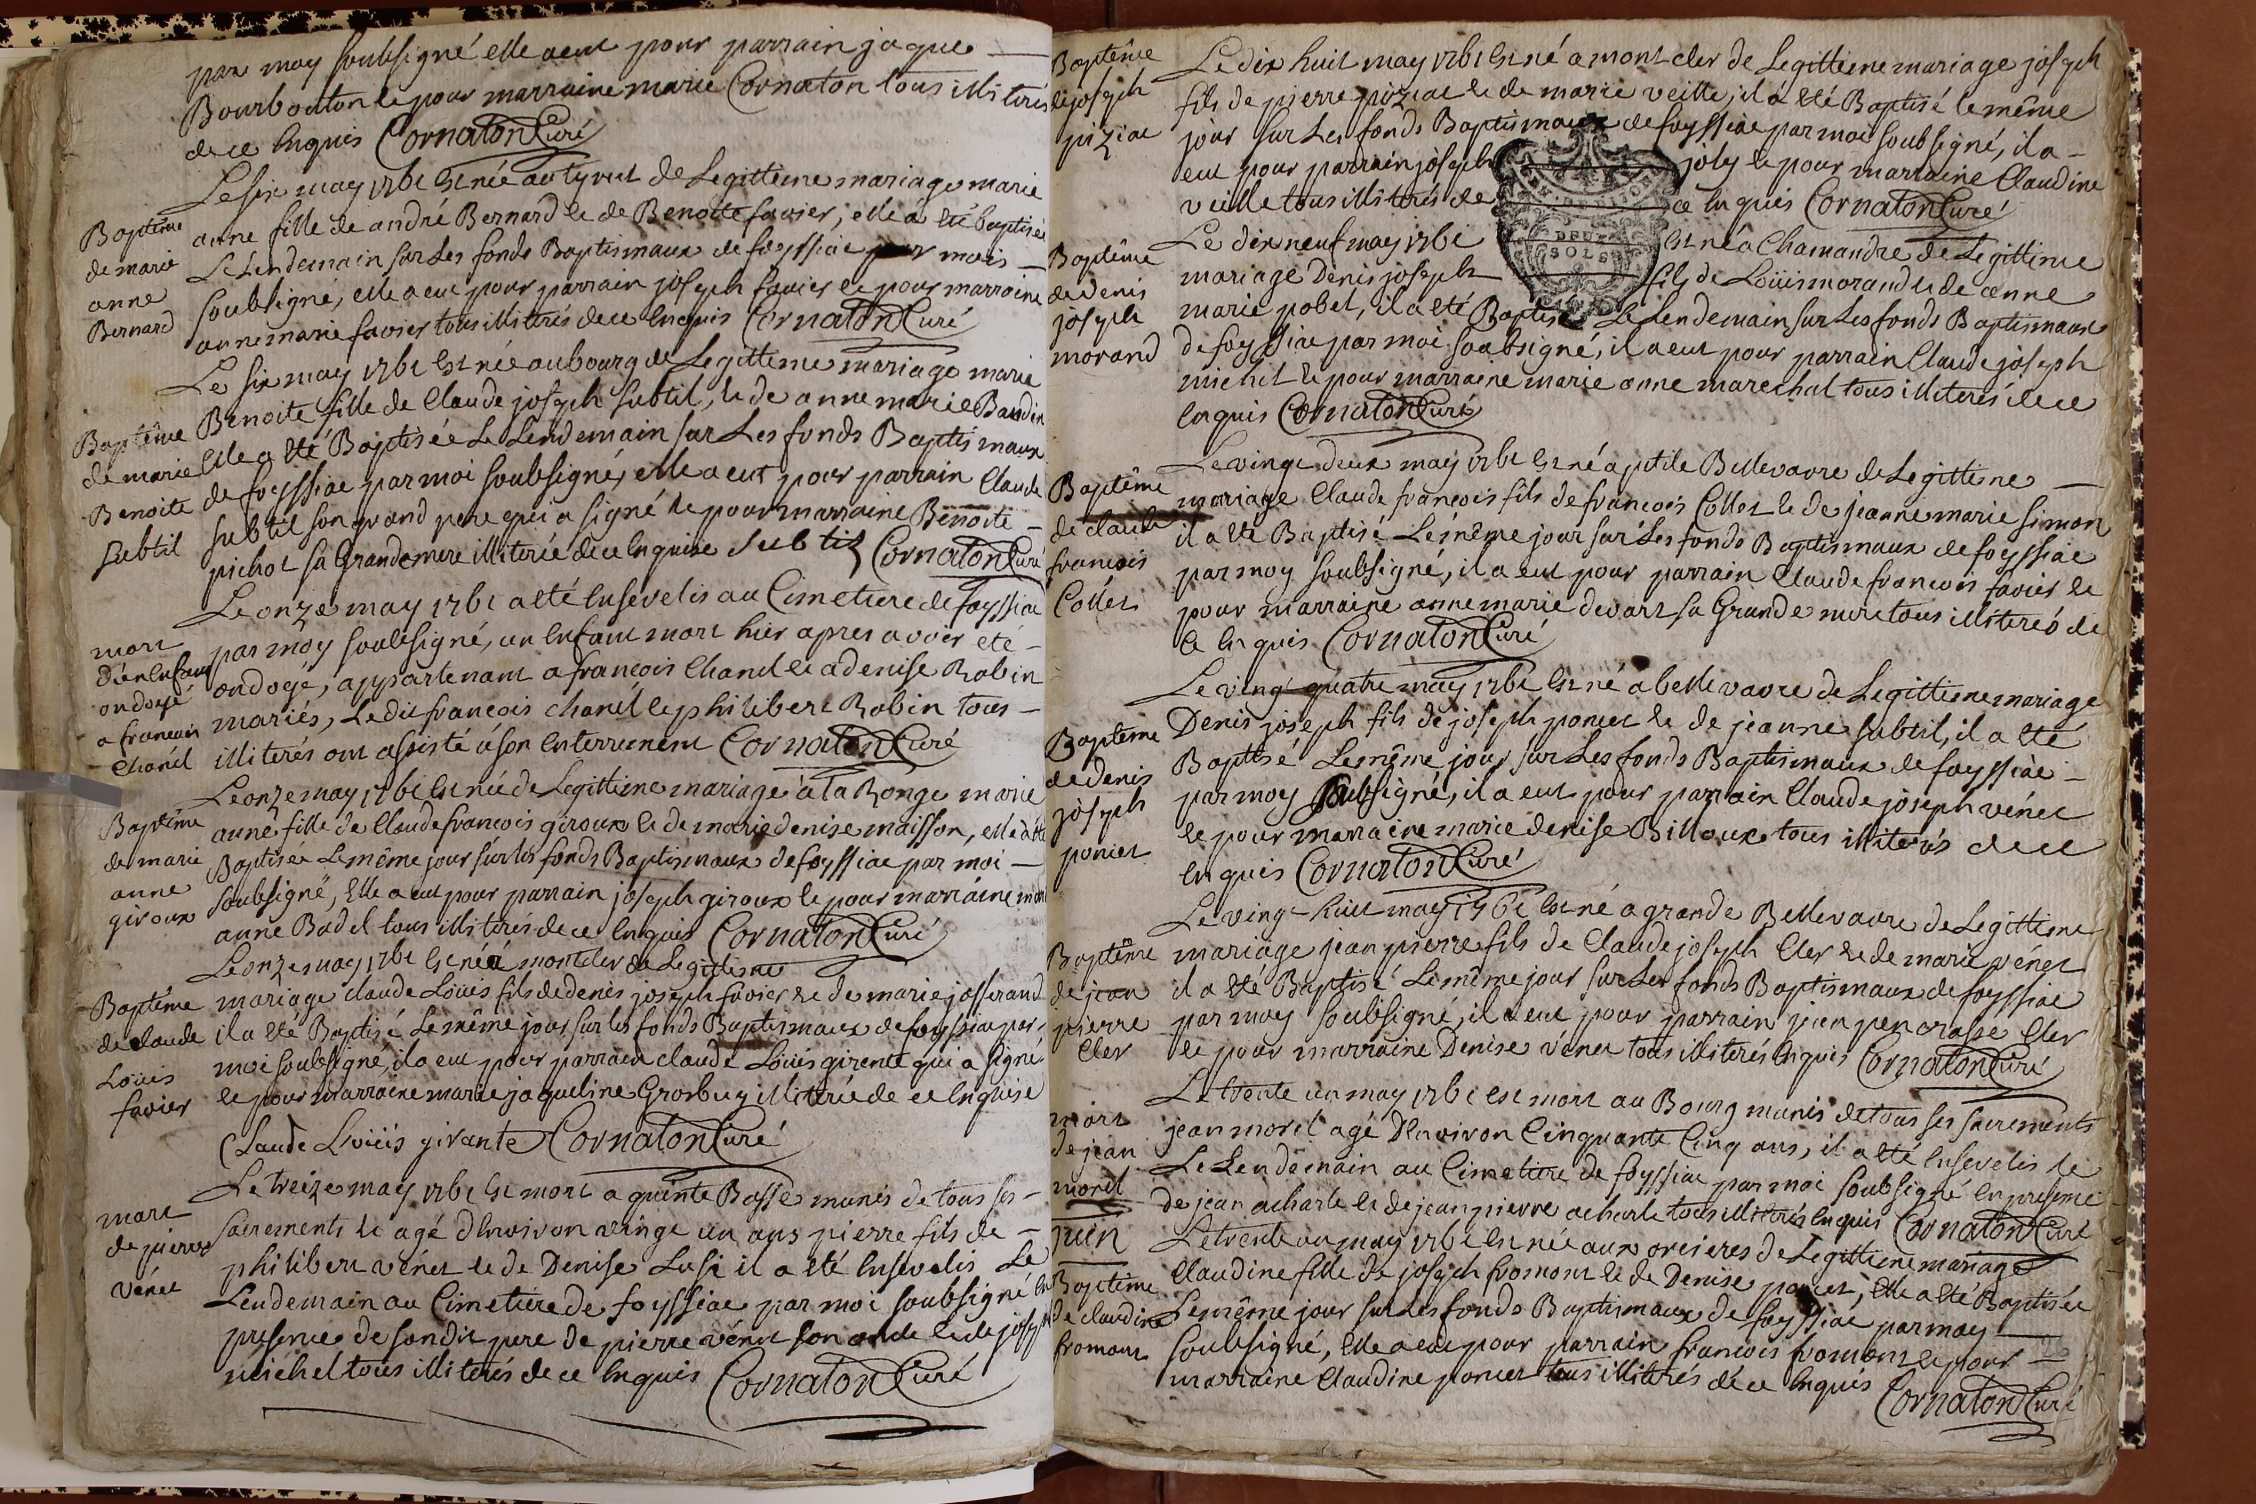 par moy soubsigné elle a eut pour parrain jaque
Bourbouton le pour marraine marie Cornaton tous illiterés
de ce enquis Cornaton Curé
Le six may 1761 est née au tyret de Legittime mariage marie
Baptême
de marie
anne
Bernard
anne fille de andré Bernard et de Benoite favier, elle a été baptisée
Le Lendemain sur Les fonds Baptismaux de foyssiac par moi
soubsigné, elle a eut pour parrain joseph favier et pour marraine
anne marie favier tous illiterés de ce enquis Cornaton Curé
Le six may 1761 est née au bourg de Legittime mariage marie
Baptême
de marie
Benoite
Subtil
Benoite fille de Claude joseph Subtil, et de anne marie Baudin
elle a été Baptisée Le Lendemain sur Les fonds Baptismaux
de foyssiac par moi soubsigné, elle a eut pour parrain Claude
Subtil son grand pere qui a signé et pour marraine Benoite
pichot sa Grandemere illiterée de ce enquise Subtil Cornaton Curé
Le onze may 1761 a été ensevelis au Cimetiere de foyssiac
mort
d'un enfant
ondoyé
a francois
Chanél
par moy soubsigné, un enfant mort hier apres avoir été
ondoyé, appartenant a francois Chanel et a denise Robin
mariés, Le dit francois chanél et philibert Robin tous
illiterés ont assisté a son enterrement Cornaton Curé
Le onze may 1761 est née de Legittime mariage à la Ronge marie
Baptême
de marie
anne
giroux
anne fille de Claude francois giroux et de marie denise maisson, elle a été
Baptisée Le même jour sur les fonds Baptismaux de foyssiac par moi
soubsigné, elle a eut pour parrain joseph giroux et pour marraine marie
anne Badel tous illiterés de ce enquis Cornaton Curé
Le onze may 1761 est né a montcler de Legittime
Baptême
de claude
Loüis
favier
mariage claude Loüis fils de denis joseph favier et de marie josserand
il a été Baptisé Le même jour sur les fonds Baptismaux de foyssiac par
moi soubsigné, il a eut pour parrain claude Loüis girente qui a signé
et pour marraine marie jaqueline Grosbuy illiterée de ce enquise
Claude Loüis girante Cornaton Curé
Le treize may 1761 est mort a quinte Basse munis de tous ses
mort
de pierre
vénet
sacrements et agé d'environ vingt un ans pierre fils de
philibert vénet et de Denise Lusi il a été ensevelis Le
Lendemain au Cimetiere de foyssiac par moi soubsigné en
presence de son dit pere de pierre vénet son oncle et de joseph
michel tous illiterés de ce enquis Cornaton Curé
Baptême
de joseph
piziac
Le dix huit may 1761 est né a montcler de Legittime mariage joseph
fils de pierre piziat et de marie veille, il a été Baptisé le même
jour sur Les fonds Baptismaux de foyssiac par moi soubsigné, il a
eut pour parrain joseph joly et pour marraine Claudine
veille tous illiterés de ce enquis Cornaton Curé
DEUX
SOLS
Baptême
de denis
joseph
morand
Le dix neuf may 1761 est né a Chamandre de Legittime
mariage Denis joseph fils de Loüis morand et de anne
marie pobel, il a été Baptisé Le Lendemain sur Les fonds Baptismaux
de foyssiac par moi soubsigné, il a eut pour parrain Claude joseph
michel et pour marraine marie anne marechal tous illiterés de ce
enquis Cornaton Curé
Baptême
de claude
francois
Collet
Le vingt deux may 1761 est né a petite Bellevavre de Legittime
mariage Claude francois fils de francois Collet et de jeanne marie simon
il a été Baptisé Le même jour sur Les fonds Baptismaux de foyssiac
par moy soubsigné, il a eut pour parrain Claude francois favier et
pour marraine anne marie devart sa Grande mere tous illiterés de
ce enquis Cornaton Curé
Baptême
de denis
joseph
poncet
Le vingt quatre may 1761 est né a bellevavre de Legittime mariage
Denis joseph fils de joseph poncet et de jeanne Subtil, il a été
Baptisé Le même jour sur Les fonds Baptismaux de foyssiac
par moy soubsigné, il a eut pour parrain Claude joseph vénet
et pour marraine marie denise Billoux tous illiterés de ce
enquis Cornaton Curé
Baptême
de jean
pierre
Cler
Le vingt huit may 1761 est né a grande Bellevavre de Legittime
mariage jean pierre fils de Claude joseph Cler et de marie vénet
il a été Baptisé Le même jour sur Les fonds Baptismaux de foyssiac
par moy soubsigné, il a eut pour parrain jean pencrasse Cler
et pour marraine Denise vénet tous illiterés enquis Cornaton Curé
mort
de jean
morel
Le trente un may 1761 est mort au Bourg munis de tous ses sacrements
jean morel agé d'environ Cinquante Cinq ans, il a été ensevelis le
Le Lendemain au Cimetiere de foyssiac par moi soubsigné en presence
de jean acharle et de jean pierre acharle tous illiterés enquis Cornaton Curé
juin
Baptême
de claudine
fromont
Le trente un may 1761 est née aux orcieres de Legittime mariage
Claudine fille de joseph fromont et de Denise poncet, elle a été Baptisée
Le même jour sur Les fonds Baptismaux de foyssiac par moy
soubsigné, elle a eut pour parrain francois fromont et pour
marraine Claudine poncet tous illiterés de ce enquis Cornaton Curé